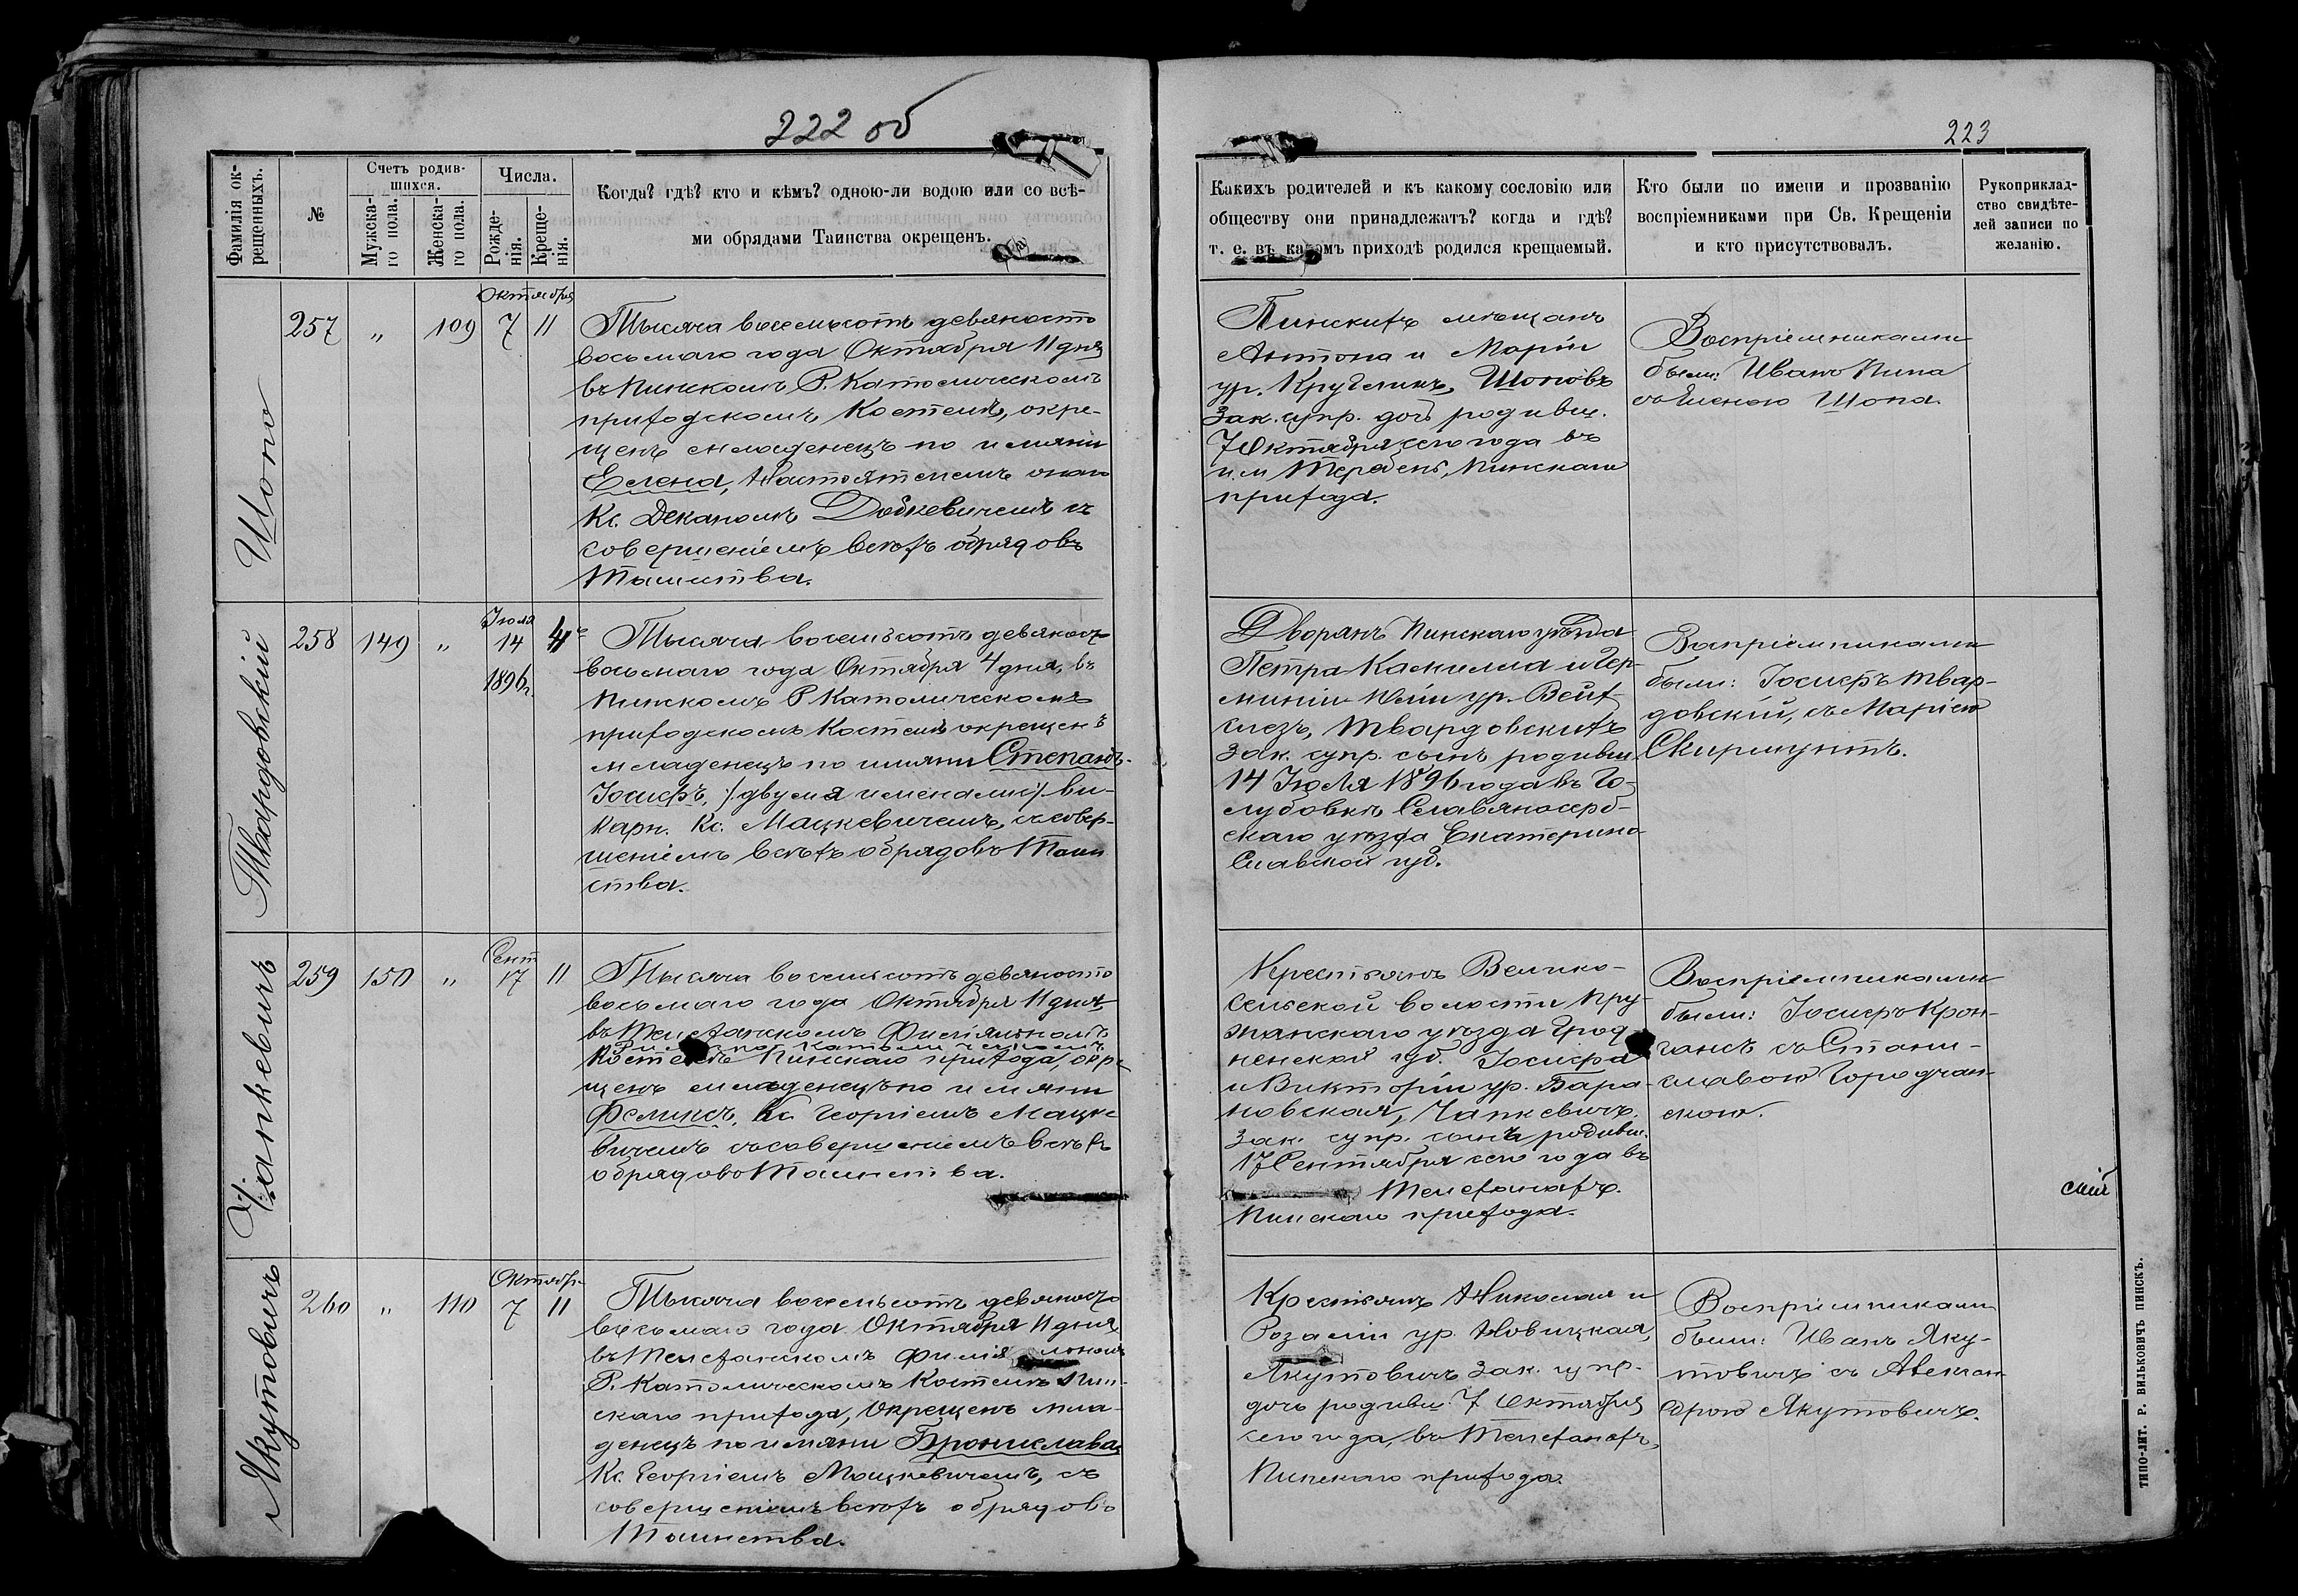 222 об
223
Фамилія ок-
рещенныхъ.
№
Счетъ родив-
шихся.
Мужска-
го пола.
Женска-
го пола.
Числа.
Рожде-
нія.
Креще-
нія.
Когда? гдѣ? кто и кѣмъ? одною-ли водою или со всѣ-
ми обрядами Таинства окрещенъ.
Какихъ родителей и къ какому сословію или
обществу они принадлежатъ? когда и гдѣ?
т. е. въ какомъ приходѣ родился крещаемый.
Кто были по имени и прозванію
воспріемниками при Св. Крещеніи
и кто присутствовалъ.
Рукоприклад-
ство свидѣте-
лей записи по
желанію.
Шопо
257 „ 109
Октября
7 11
Тысяча восемьсотъ девяносто
восьмаго года Октября 11 дня
въ Пинскомъ Р. Католическомъ
приходскомъ Костелѣ, окре-
щенъ младенецъ по имяни
Елена, Настоятелемъ онаго
Кс. Деканомъ Добкевичемъ съ
совершеніемъ всѣхъ обрядовъ
Таинства.
Пинскихъ мѣщанъ
Антона и Маріи
ур. Кругликъ, Шоповъ
зак. супр. дочь родивш.
7 Октября сего года въ
им Теребень, Пинскаго
прихода.
Воспріемниками
были: Иванъ Пипа
съ Еленою Шопа.
Твардовскій
258 149 „
Іюля
14 4
1896 г.
Тысяча восемьсотъ девяносто
восьмаго года Октября 4 дня, въ
Пинскомъ Р Католическомъ
приходскомъ Костелѣ окрещенъ
младенецъ по имяни Степанъ-
Іосифъ, /двумя именами/ ви-
карн. Кс. Мацкевичемъ, съ совер-
шеніемъ всѣхъ обрядовъ Таин
ства.
Дворянъ Пинскаго уѣзда
Петра Камилла и Гер-
миніи ур. Вейс-
Твардовскихъ
зак. супр. сынъ родивш.
14 Іюля 1896 года въ Го-
лубовкѣ Славяносерб-
скаго уѣзда Екатерино-
славской губ.
Воспріемниками
были: Іосифъ Твар-
довскій, съ Маріею
Скирмунтъ.
Чапкевичъ
259 150 „
Сент
17 11
Тысяча восемьсотъ девяносто
восьмаго года Октября 11 дня
въ Телеханскомъ Филіяльномъ
Римско Католическомъ
Костелѣ Пинскаго прихода, окре
щенъ младенецъ по имяни
Феликсъ, Кс. Георгіемъ Мацке
вичемъ съ совершеніемъ всѣхъ
обрядовъ Таинства.
Крестьянъ Велико-
сельской волости Пру-
жанскаго уѣзда Грод-
ненской губ. Іосифа
и Викторіи ур. Бара-
новская, Чапкевичъ
зак. супр. сынъ родивш.
17 Сентября сего года въ
Телеханахъ.
Пинскаго прихода.
Воспріемниками
были: Іосифъ Крон-
гансъ съ Стани-
славою Городчан-
скою.
Якутовичъ
260 „ 110
Октябр.
7 11
Тысяча восемьсотъ девяносто
восьмаго года Октября 11 дня
въ Телеханскомъ Филіяльномъ
Р. Католическомъ Костелѣ Пин-
скаго прихода, окрещенъ мла-
денецъ по имяни Брониславва
Кс. Георгіемъ Мацкевичемъ, съ
совершеніемъ всѣхъ обрядовъ
Таинства.
Крестьянъ Николая и
Розаліи ур. Новицкая,
Якутовичъ зак. супр.
дочь родивш. 7 Октября
сего года, въ Телеханахъ,
Пинскаго прихода.
Воспріемниками
были: Иванъ Яку-
товичъ съ Алексан
дрою Якутовичъ.
ТИПО-ЛИТ. Р. ВИЛЬКОВИЧЪ ПИНСКЪ.